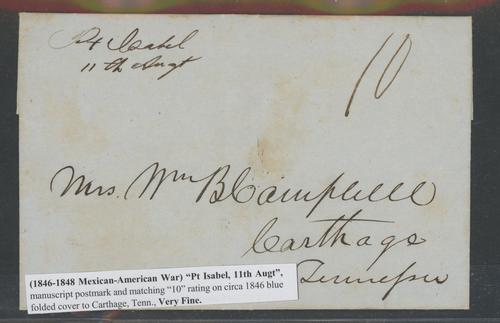 Pt Isabel
11th Augt
10
Mrs. Wm B Campbell
Carthage
Tennessee
(1846-1848 Mexican-American War) “Pt Isabel, 11th Augt”,
manuscript postmark and matching “10” rating on circa 1846 blue
folded cover to Carthage, Tenn., Very Fine.